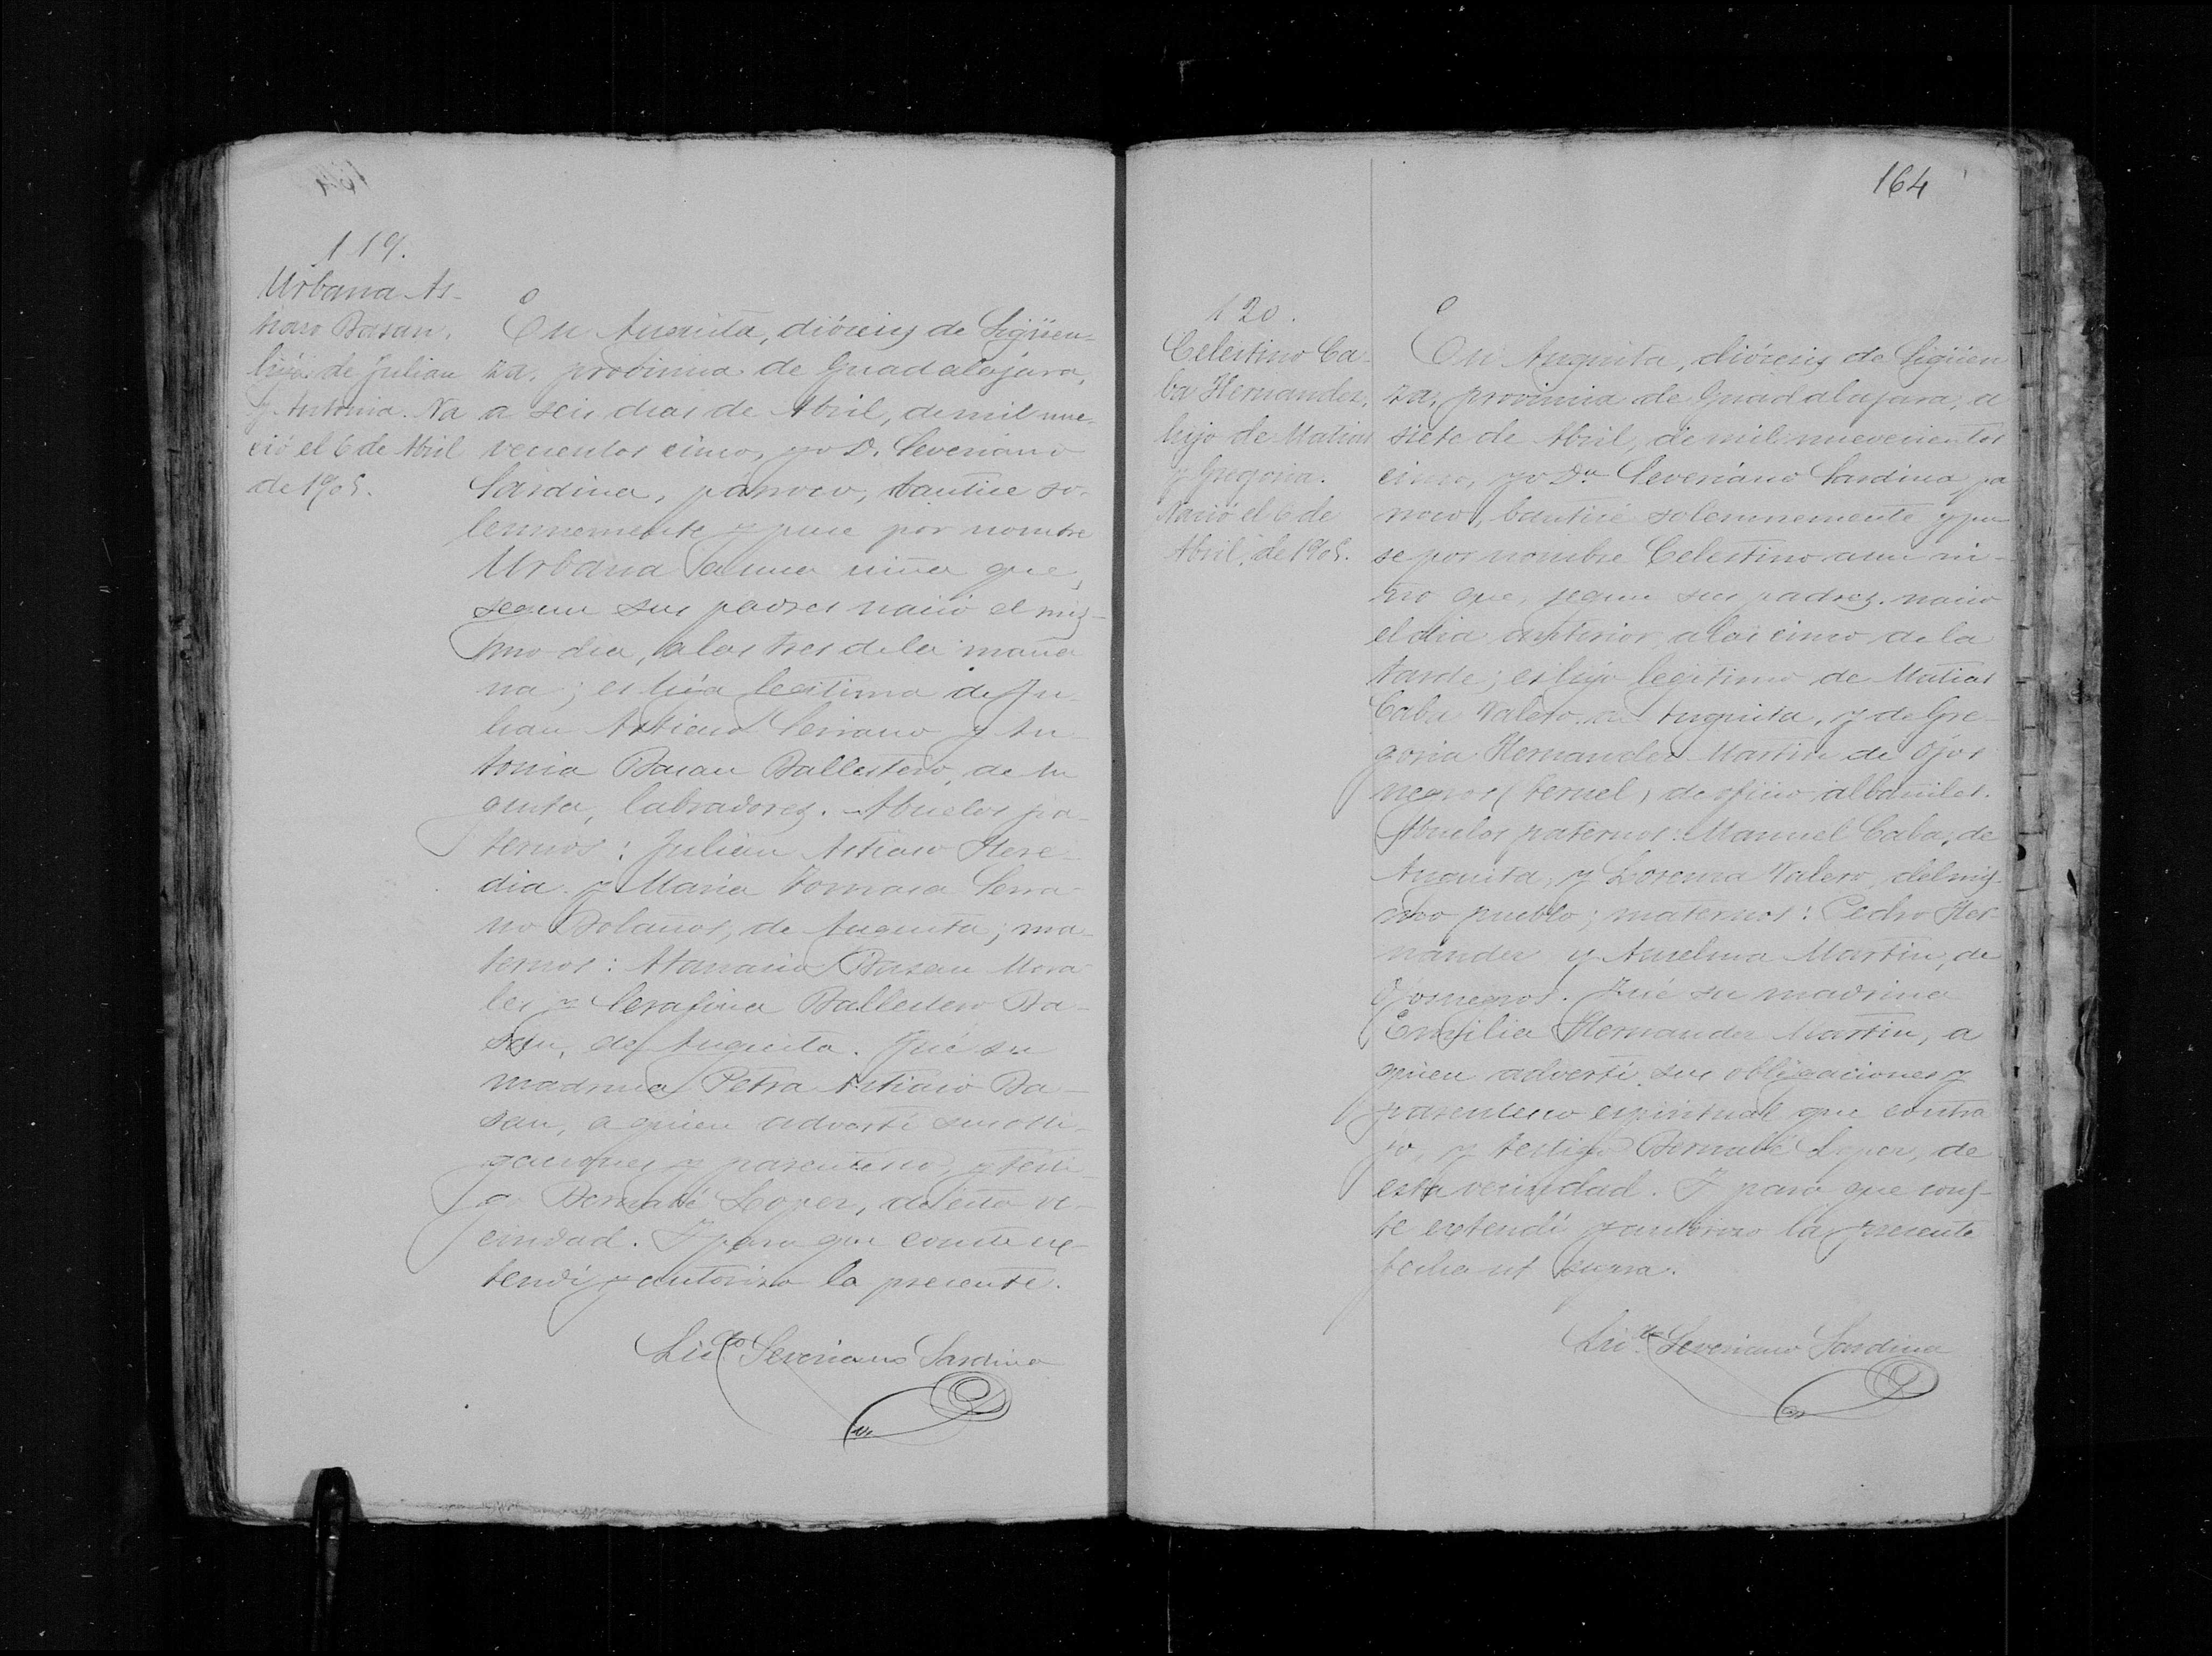 119.
Urbana As-
tiaso Basan,
hija de Julian
y Antonia. Na
ció el 6 de Abril
de 1905.
En Anguita, diócesis de Sigüen-
za, provincia de Guadalajara,
a seis dias de Abril, de mil nue-
vecientos cinco, yo D. Severiano
Sardina, párroco, bauticé so-
lemnemente y puse por nombre
Urbana a una niña que,
segun sus padres nació el mis-
mo dia, a las tres de la maña
na; es hija legitima de Ju-
lian Astiaso Serrano y An-
tonia Basan Ballestero, de An
guita, labradores. Abuelos pa-
ternos: Julian Astiaso Here-
dia y Maria Tomasa Serra-
no Bolaños, de Anguita; ma-
ternos: Atanasio Basan Mora
les y Serafina Ballestero Ba-
san, de Anguita. Fué su
madrina Petra Astiaso Ba-
san, a quien advertí sus obli-
gaciones y parentesco, y testi-
go Bernabé Lopez, de esta ve-
cindad. Y para que conste ex-
tendí y autorizo la presente.
Licdo Severiano Sardina
164
120.
Celestino Ca-
ba Hernandez,
hijo de Matias
y Gregoria.
Nació el 6 de
Abril, de 1905.
En Anguita, diócesis de Sigüen
za, provincia de Guadalajara, a
siete de Abril, de mil nuevecientos
cinco, yo Dn Severiano Sardina pá
rroco, bauticé solemnemente y pu-
se por nombre Celestino a un ni-
ño que, segun sus padres, nació
el dia anterior, a las cinco de la
tarde; es hijo legítimo de Matias
Caba Valero de Anguita, y de Gre-
goria Hernandez Martin de Ojos
negros (Teruel) de oficio albañiles.
Abuelos paternos: Manuel Caba, de
Anguita, y Lorenza Valero, del mis-
mo pueblo; maternos: Pedro Her-
nandez y Anselma Martin, de
Ojosnegros. Fué su madrina
Emilia Hernandez Martin, a
quien advertí sus obligaciones y
parentesco espiritual que contra
jo, y testigo Bernabé Lopez, de
esta vecindad. Y para que cons-
te extendí y autorizo la presente
fecha ut supra.
Licdo Severiano Sardina